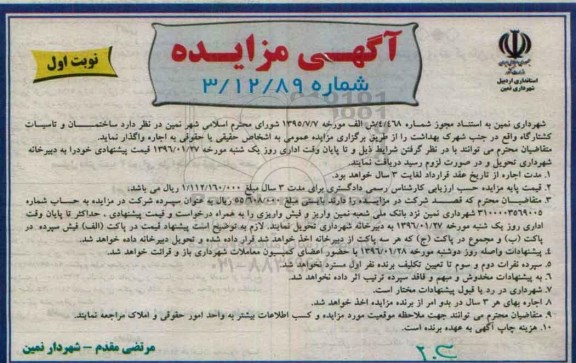 جمهوری اسلامی ایران
استانداری اردبیل
شهرداری نمین
آگهی مزایده
شماره ۳/۱۲/۸۹
نوبت اول
شهرداری نمین به استناد مجوز شماره ۴/۴۶۸/ش الف مورخه ۱۳۹۵/۷/۷ شورای محترم اسلامی شهر نمین در نظر دارد ساختمان و تاسیسات
کشتارگاه واقع در جنب شهرک بهداشت را از طریق برگزاری مزایده عمومی به اشخاص حقیقی یا حقوقی به اجاره واگذار نماید.
متقاضیان محترم می توانند با در نظر گرفتن شرایط ذیل و تا پایان وقت اداری روز یک شنبه مورخه ۱۳۹۶/۰۱/۲۷ قیمت پیشنهادی خودرا به دبیرخانه
شهرداری تحویل و در صورت لزوم رسید دریافت نمایند.
۱. مدت اجاره از تاریخ عقد قرارداد لغایت ۳ سال خواهد بود.
۲. قیمت پایه مزایده حسب ارزیابی کارشناس رسمی دادگستری برای مدت ۳ سال مبلغ ۱/۱۱۲/۱۶۰/۰۰۰ ریال می باشد.
۳. متقاضیان محترم که قصد شرکت در مزایده را دارند بایستی مبلغ ۵۵/۶۰۸/۰۰۰ ریال به عنوان سپرده شرکت در مزایده به حساب شماره
۳۱۰۰۰۰۳۵۶۹۰۰۵ شهرداری نمین نزد بانک ملی شعبه نمین واریز و فیش واریزی را به همراه درخواست و قیمت پیشنهادی ، حداکثر تا پایان وقت
اداری روز یک شنبه مورخه ۱۳۹۶/۰۱/۲۷ به دبیرخانه شهرداری تحویل نمایند. لازم به توضیح است پیشنهاد قیمت در پاکت (الف) فیش سپرده در
پاکت (ب) و مجموع در پاکت (ج) که هر سه پاکت از دبیرخانه اخذ خواهد شد قرار داده شده و تحویل دبیرخانه داده خواهد شد.
۴. پیشنهادات واصله روز دوشنبه مورخه ۱۳۹۶/۰۱/۲۸ با حضور اعضای کمیسیون معاملات شهرداری باز و قرائت خواهد شد.
۵. سپرده نفرات دوم و سوم تا تعیین تکلیف برنده نفر اول مسترد نخواهد شد.
۶. به پیشنهادات مخدوش و مبهم و فاقد سپرده ترتیب اثر داده نخواهد شد.
۷. شهرداری در رد یا قبول پیشنهادات مختار است.
۸. اجاره بهای هر ۳ سال در بدو امر از برنده مزایده اخذ خواهد شد.
۹. متقاضیان محترم می توانند جهت ملاحظه موقعیت مورد مزایده و کسب اطلاعات بیشتر به واحد امور حقوقی و املاک مراجعه نمایند.
۱۰. هزینه چاپ آگهی به عهده برنده است.
مرتضی مقدم - شهردار نمین